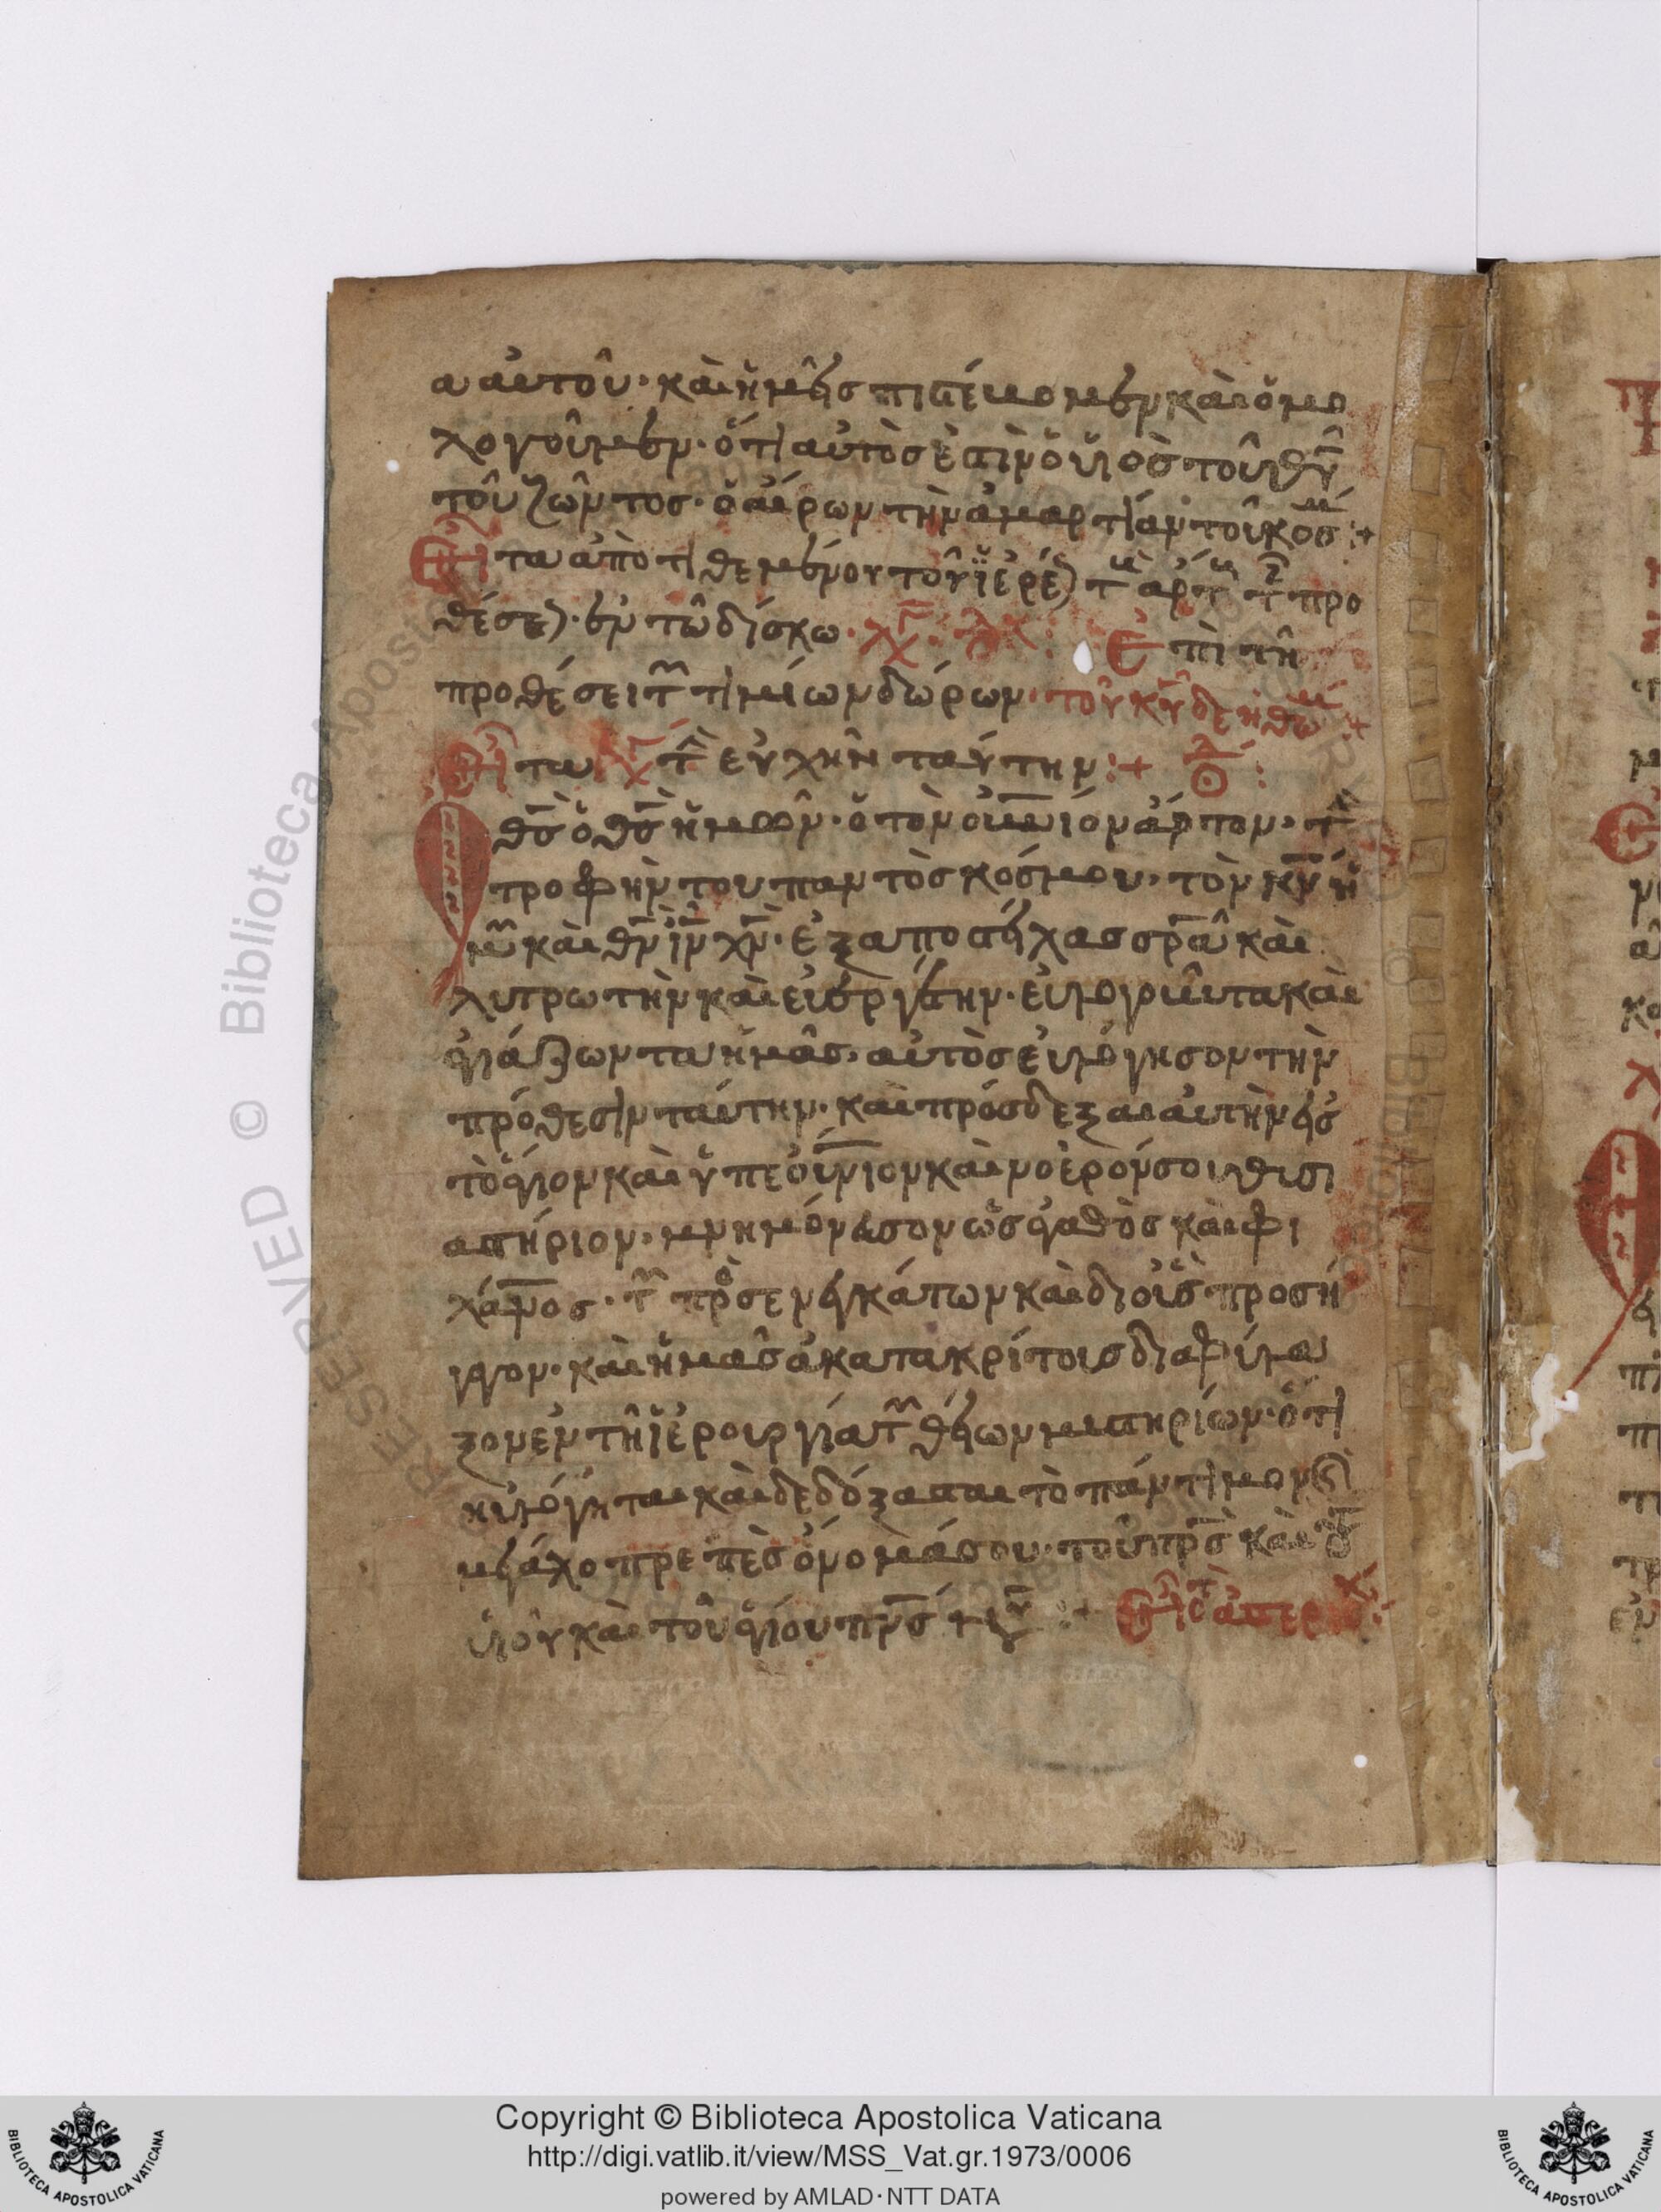 α αυτοῦ· καὶ ἡμεῖς πιστέυομεν καὶ ὁμο
λογοῦμεν· ὅτι αὐτὸς ἐστὶν ὁ υἱὸς τοῦ θῦ
τοῦ ζῶντος· ὁ αίρων τὴν ἁμαρτίαν τοῦ κοσμ :+
Εἶτα ἀποτιθεμένου τοῦ ἱερέ τ αρτ τ προ
θέσε· ἐν τῶ δίσκω· Ἐπὶ τῆ
προθέσει τ τιμίων δώρων· τοῦ κῦ δεηθῶμ :+
Εἶτα τ ἐυχὴν ταύτην :+
θς ὁ θς ἡμῶν· ὁ τὸν οὐνιον άρτον· τ
τροφὴν του παντὸς κόσμου· τὸν κν ἡ
μ καὶ θν ιν χν· ἐξαποστείλας σρα καὶ
λυτρωτὴν καὶ ευεργέτην· ευλογοῦντα καὶ
ἁγιάζωντα ἡμᾶς· αὐτὸς ἐυλόγησον τὴν
πρόθεσιν ταύτην· καὶ πρόσδεξαι αυτὴν εἰς
τὸ ἅγιον καὶ ὑπεουνιον καὶ νοερόν σου θυσι
αστήριον· μνημόνευσον ὡς ἀγαθὸς καὶ φι
λάνος· τ προσενεγκάντων καὶ δι οὓς προσή
γαγον· καὶ ἡμᾶς ἀκατακρίτους διαφύλα
ξον ἐν τῆ ἱερουργία τ θείων μυστηρίων· ὅτι
ηυλόγηται καὶ δεδόξασται τὸ πάντιμον καὶ
μεγαλοπρεπὲς ὄνομά σου· τοῦ πρς καὶ τοῦ
υἱοῦ καὶ τοῦ ἁγίου πνς
Copyright © Biblioteca Apostolica Vaticana
http://digi.vatlib.it/view/MSS_Vat.gr.1973/0006
powered by AMLAD·NTT DATA
BIBLIOTECA APOSTOLICA VATICANA
BIBLIOTECA APOSTOLICA VATICANA